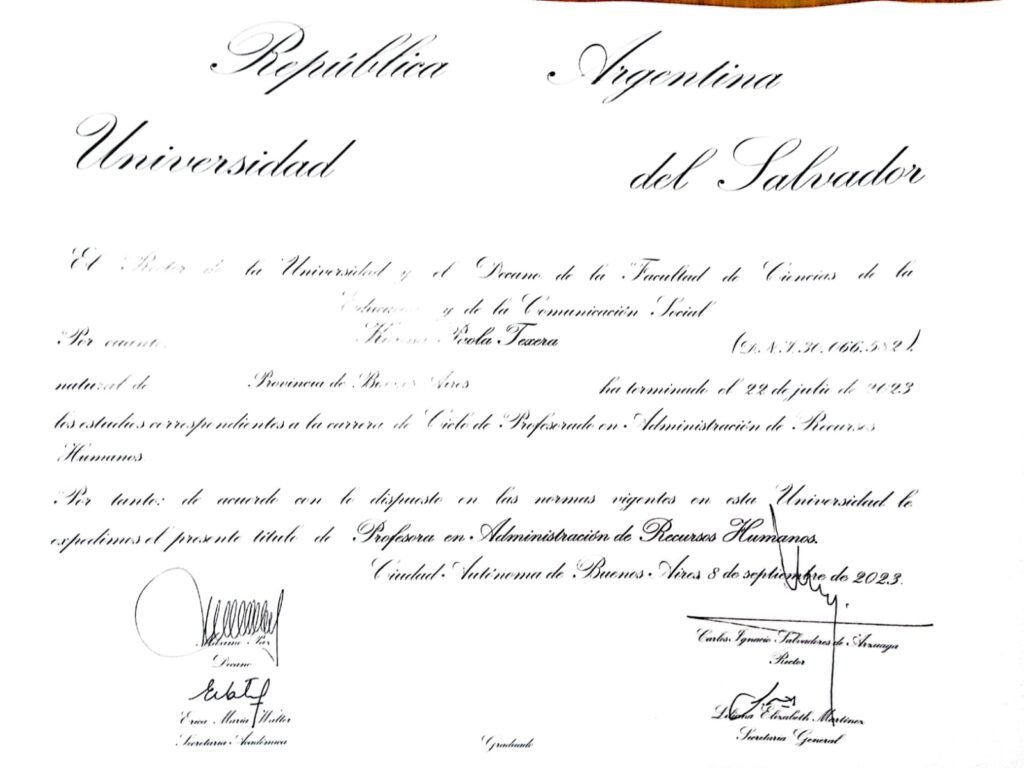 República Argentina
Universidad del Salvador
El Rector de la Universidad y el Decano de la Facultad de Ciencias de la
Educación y de la Comunicación Social
Por cuanto: Paola Texera (D.N.I. 30.066.582),
natural de Provincia de Buenos Aires ha terminado el 22 de julio de 2023
los estudios correspondientes a la carrera de Ciclo de Profesorado en Administración de Recursos
Humanos
Por tanto: de acuerdo con lo dispuesto en las normas vigentes en esta Universidad le
expedimos el presente título de Profesora en Administración de Recursos Humanos.
Ciudad Autónoma de Buenos Aires 8 de septiembre de 2023.
Carlos Ignacio Salvadores de Arzuaga
Decano
Rector
Erica María Walter
Liliana Elizabeth Martínez
Secretaria Académica
Graduado
Secretaria General